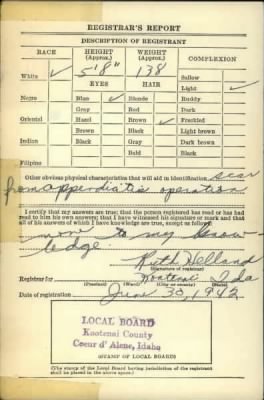 REGISTRAR'S REPORT
DESCRIPTION OF REGISTRANT
RACE HEIGHT (Approx.) WEIGHT (Approx.) COMPLEXION
White ✓ 5'8" 138 Sallow
EYES HAIR Light ✓
Negro Blue ✓ Blonde ✓ Ruddy
Gray Red Dark
Oriental Hazel Brown Freckled
Brown Black Light brown
Indian Black Gray Dark brown
Bald Black
Filipino
Other obvious physical characteristics that will aid in identification scar
from appendicitis operation
I certify that my answers are true; that the person registered has read or has had
read to him his own answers; that I have witnessed his signature or mark and that
all of his answers of which I have knowledge are true, except as follows:
none to my know
ledge.
Ruth Helland
(Signature of registrar)
Registrar for Kootenai Ida
(Precinct) (Ward) (City or county) (State)
Date of registration June 30, 1942
LOCAL BOARD
Kootenai County
Coeur d'Alene, Idaho
(STAMP OF LOCAL BOARD)
(The stamp of the Local Board having jurisdiction of the registrant
shall be placed in the above space.)